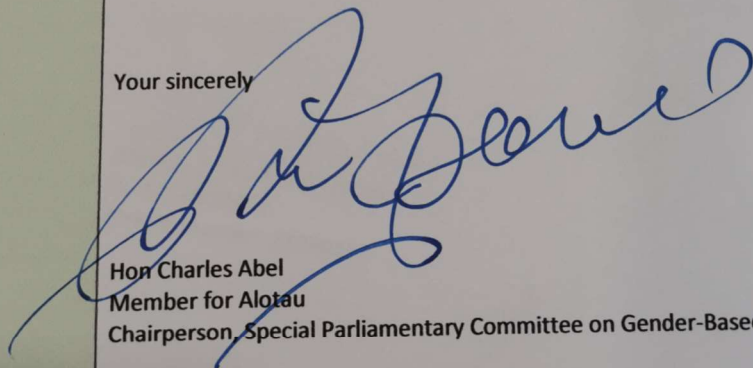 Your sincerely
Hon Charles Abel
Member for Alotau
Chairperson, Special Parliamentary Committee on Gender-Base